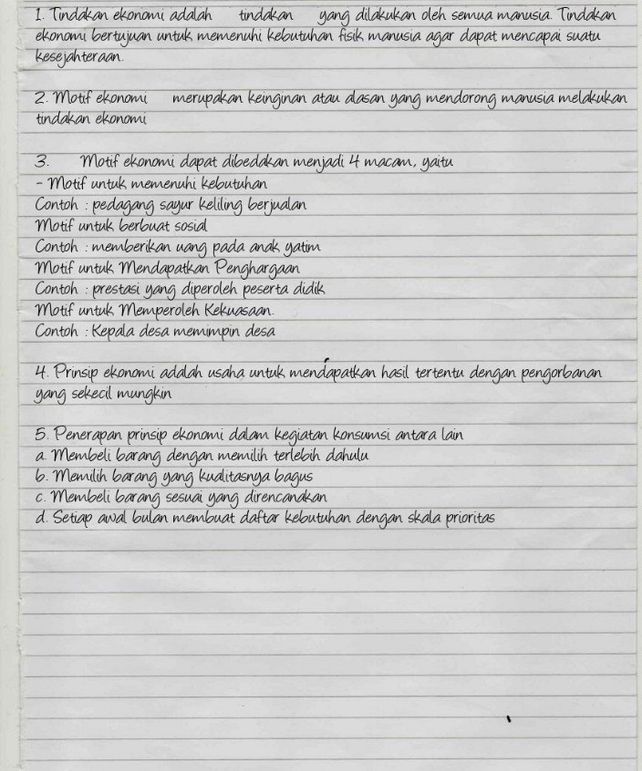 1. Tindakan ekonomi adalah tindakan yang dilakukan oleh semua manusia. Tindakan
ekonomi bertujuan untuk memenuhi kebutuhan fisik manusia agar dapat mencapai suatu
kesejahteraan.
2. Motif ekonomi merupakan keinginan atau alasan yang mendorong manusia melakukan
tindakan ekonomi
3. Motif ekonomi dapat dibedakan menjadi 4 macam, yaitu
- Motif untuk memenuhi kebutuhan
Contoh : pedagang sayur keliling berjualan
Motif untuk berbuat sosial
Contoh : memberikan uang pada anak yatim
Motif untuk Mendapatkan Penghargaan
Contoh : prestasi yang diperoleh peserta didik
Motif untuk Memperoleh Kekuasaan.
Contoh : Kepala desa memimpin desa
4. Prinsip ekonomi adalah usaha untuk mendapatkan hasil tertentu dengan pengorbanan
yang sekecil mungkin
5. Penerapan prinsip ekonomi dalam kegiatan konsumsi antara lain
a. Membeli barang dengan memilih terlebih dahulu
b. Memilih barang yang kualitasnya bagus
c. Membeli barang sesuai yang direncanakan
d. Setiap awal bulan membuat daftar kebutuhan dengan skala prioritas